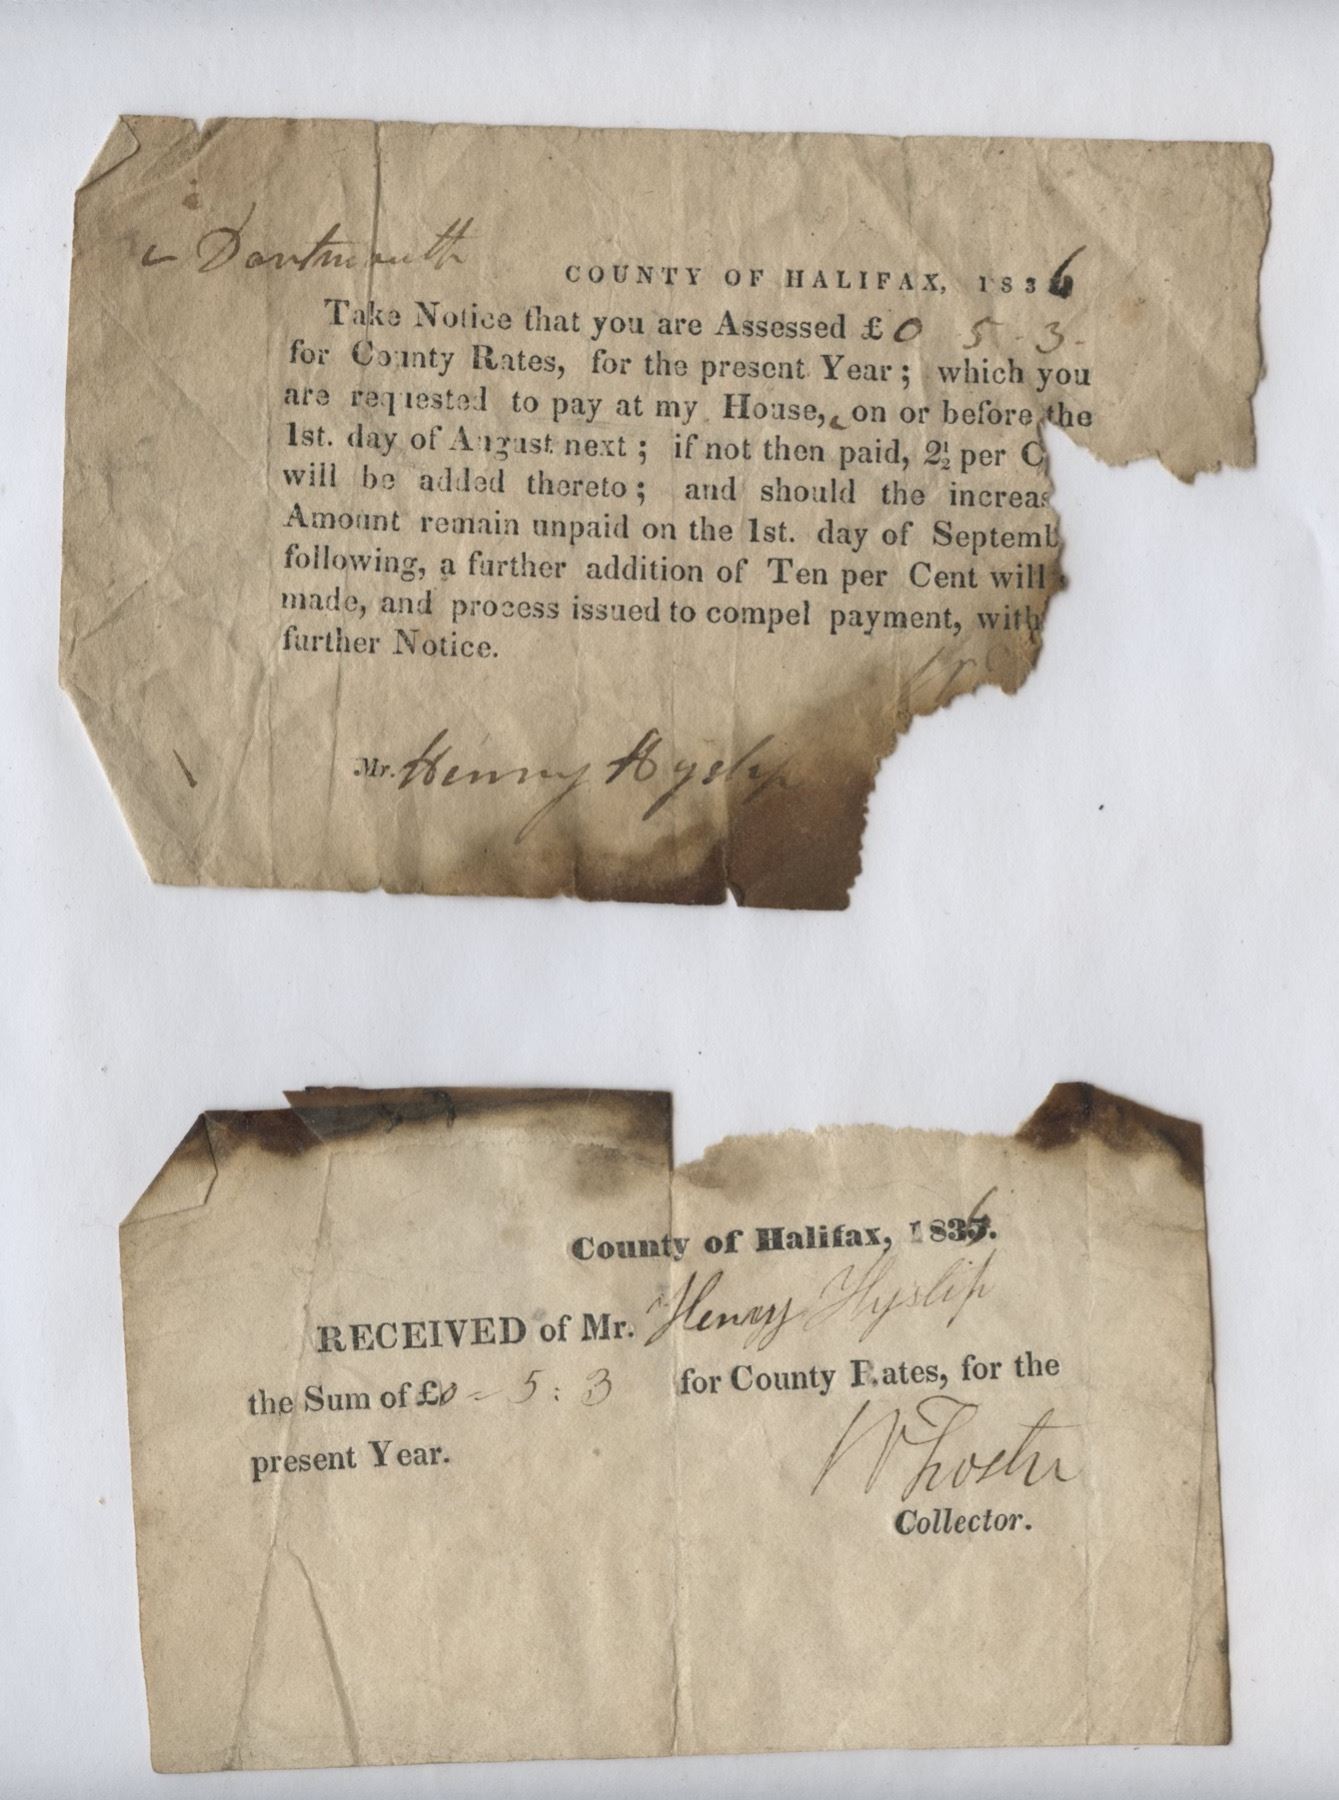 Dartmouth
COUNTY OF HALIFAX, 1836
Take Notice that you are Assessed £0 5 - 3 -
for County Rates, for the present Year; which you
are requested to pay at my House, on or before the
1st. day of August next; if not then paid, 2½ per C
will be added thereto; and should the increas
Amount remain unpaid on the 1st. day of Septemb
following, a further addition of Ten per Cent will
made, and process issued to compel payment, with
further Notice.
Mr. Henry Hyslip
County of Halifax, 1836.
RECEIVED of Mr. Henry Hyslip
the Sum of £0 - 5 : 3 for County Rates, for the
present Year.
W Foster
Collector.